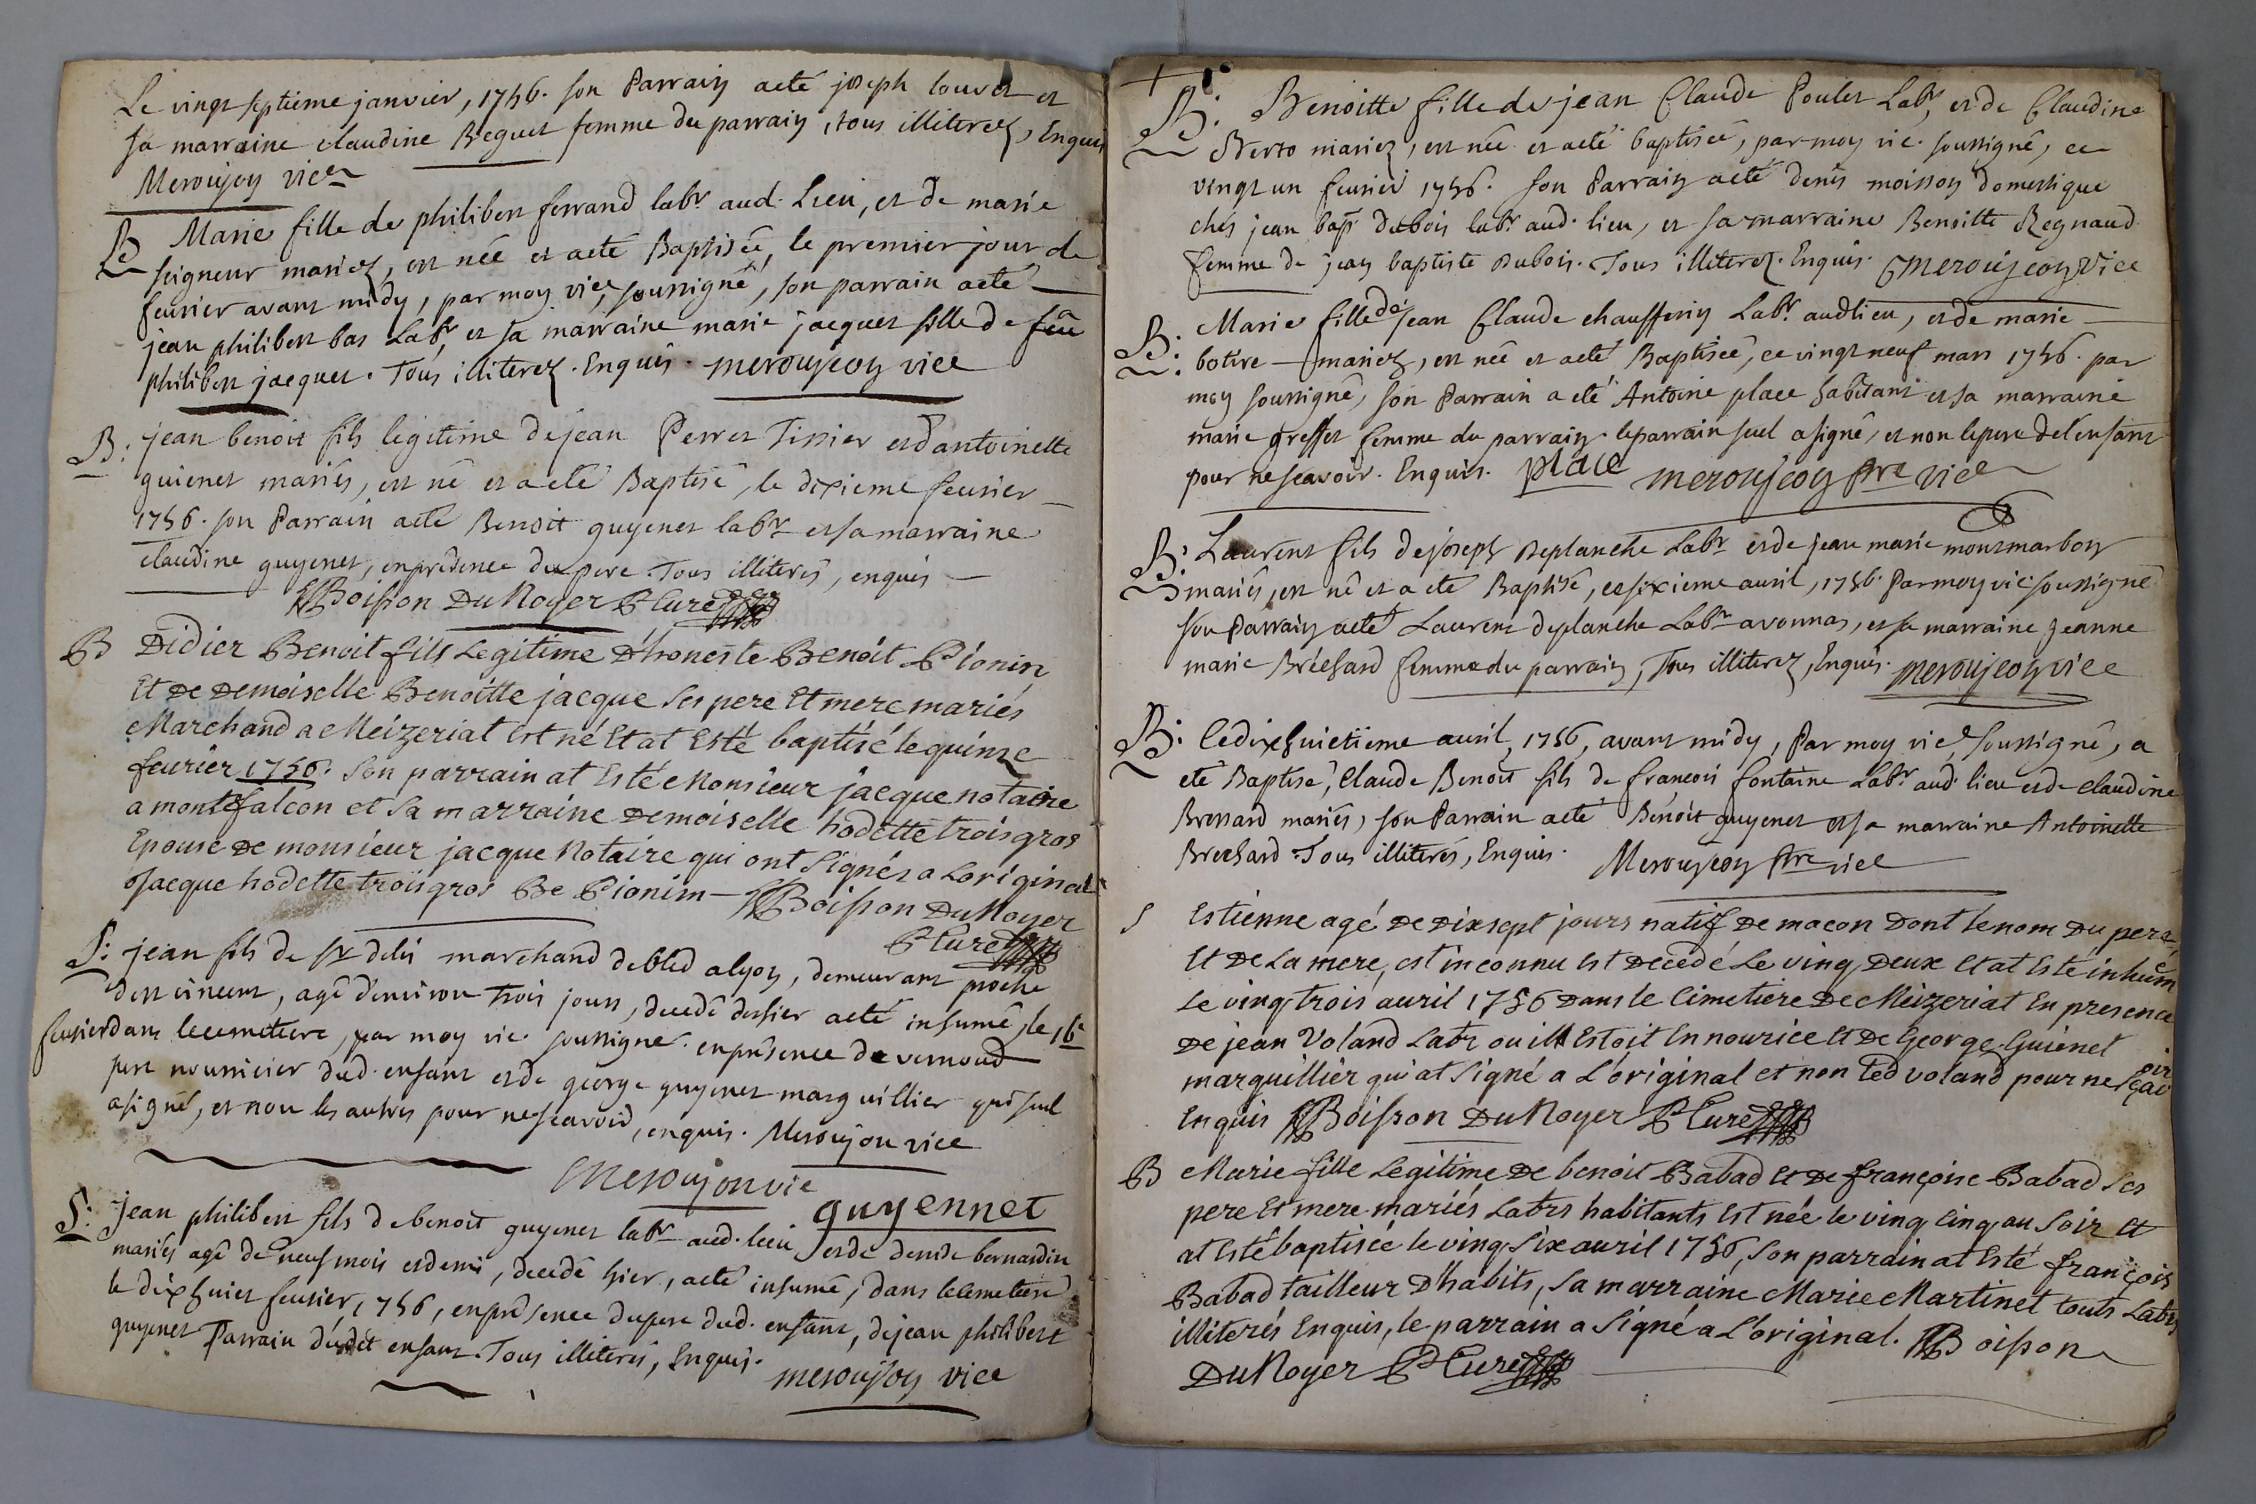 Le vingt septieme janvier, 1756. son Parrain a eté joseph louvet et
sa marraine claudine Beguet femme du parrain, tous illiterez, Enquis
Meroujon vice
B Marie fille de philibert ferrand labr aud. Lieu, et de marie
seigneur mariez, est née et a eté Baptisée, le premier jour de
feurier avant midy, par moy vice soussigné, son parrain a eté
jean philibert bas Labr et sa marraine marie jacquet fille de feu
philibert jacquet. Tous illiterez. Enquis. meroujeon vice
B: jean benoit fils legitime de jean Perret Tissier et d'antoinette
guienet mariés, est né et a eté Baptisé, le dixieme feurier
1756. son Parrain a eté Benoit guyenet labr et sa marraine
claudine guyenet, en presence du pere. Tous illiterés, enquis
Boisson Du Noyer P Curé
B Didier Benoit fils Legitime D'honeste Benoit Pionin
Et De Demoiselle Benoitte jacque ses pere Et mere mariés
Marchand a Meizeriat Est né Et at Esté baptisé le quinze
feurier 1756. Son parrain at Esté Monsieur jacque notaire
a montfalcon et Sa marraine Demoiselle hodette troisgros
Epouse De monsieur jacque Notaire qui ont Signés a Loriginal
Jacque hodette troisgros Be Pionim Boisson Du Noyer
P Curé
S: jean fils de sr delis marchand de bled a lyon, demeurant proche
st vincent, agé d'environ trois jours, decedé d'hier a eté inhumé, le 16e
feurier dans le cemetiere, par moy vic. soussigné. en presence de vernoud
pere nourricier dud. enfant et de george guyenet marguillier qui seul
a signé, et non les autres pour ne scavoir, enquis. Meroujon vice
Meroujon vic guyennet
S: jean philibert fils de benoit guyenet labr aud. lieu et de denise bernardin
mariés agé de neuf mois et demi, decedé hier, a eté inhumé, dans le cemetiere
le dix huit feurier, 1756, en presence du pere dud. enfant, de jean philibert
guyenet Parrain dudit enfant. Tous illiterés, Enquis.
meroujon vice
B: Benoitte fille de jean Claude Poulet Labr, et de Claudine
Berto mariez, est née et a eté baptisée, par moy vic. soussigné, ce
vingt un feurier 1756. son Parrain a eté denis moisson domestique
chés jean bap dubois labr aud. lieu, et sa marraine Benoitte Regnaud
femme de jean baptiste Dubois. Tous illiterez. Enquis. meroujeon vice
B: Marie fille de jean Claude chaufferin Labr. aud lieu, et de marie
botire mariez, est née et a eté Baptisée, ce vingt neuf mars 1756. par
moy soussigné, son Parrain a eté Antoine place habitant et sa marraine
marie greffet femme du parrain. le parrain seul a signé, et non le pere de l'enfant
pour ne scavoir. Enquis. place meroujeon ptre vice
B: Laurent fils de joseph Deplanche Labr et de jean marie montmarbon
mariés, est né et a eté Baptisé, ce sixieme auril, 1756. Par moy vic soussigné
son Parrain a eté Laurent deplanche Labr a vonnas, et sa marraine jeanne
marie Bréchard femme du parrain, Tous illiterez, Enquis. meroujeon vice
B: Ce dix huitieme auril, 1756, avant midy, Par moy vice soussigné, a
eté Baptisé, Claude Benoit fils de francois fontaine Labr aud lieu et de claudine
Bressard mariés, son Parrain a eté Benoit guyenet et sa marraine Antoinette
Brechard. Tous illiterés, Enquis. Meroujeon ptre vice
S Estienne agé De Dix sept jours natif De macon Dont le nom Du pere
Et De La mere, est inconnu Est Decedé Le ving Deux Et at Esté inhumé
Le ving trois auril 1756 Dans le Cimetiere De Meizeriat En presence
De jean Voland Labr ou ill Estoit En nourice Et De George Guienet
marguillier qui at Signé a L'original et non led voland pour ne Sçavoir
Enquis Boisson Du Noyer P Curé
B Marie fille Legitime De benoit Babad Et De françoise Babad Ses
pere Et mere mariés Labrs habitants Est née le ving Cinq au Soir Et
at Esté baptisée le ving Six auril 1756, Son parrain at Esté françois
Babad tailleur D'habits, Sa marraine Marie Martinet touts Labrs
illiterés Enquis, le parrain a Signé a L'original. Boisson
Du Noyer P Curé